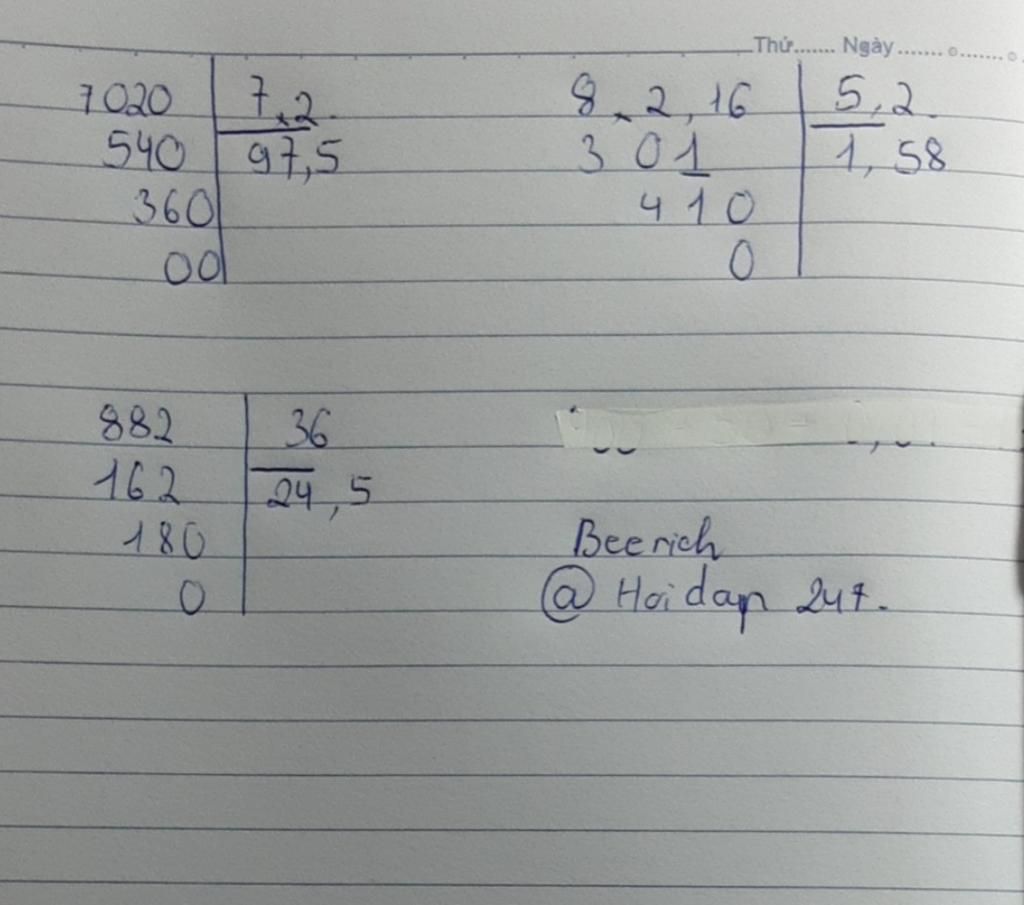 Thứ....... Ngày....... o....... o
7020 7,2
540 97,5
360
00
8,2,16 5,2
301 1,58
410
0
882 36
162 24,5
180
0
Beerich
@ Hoidap 247.